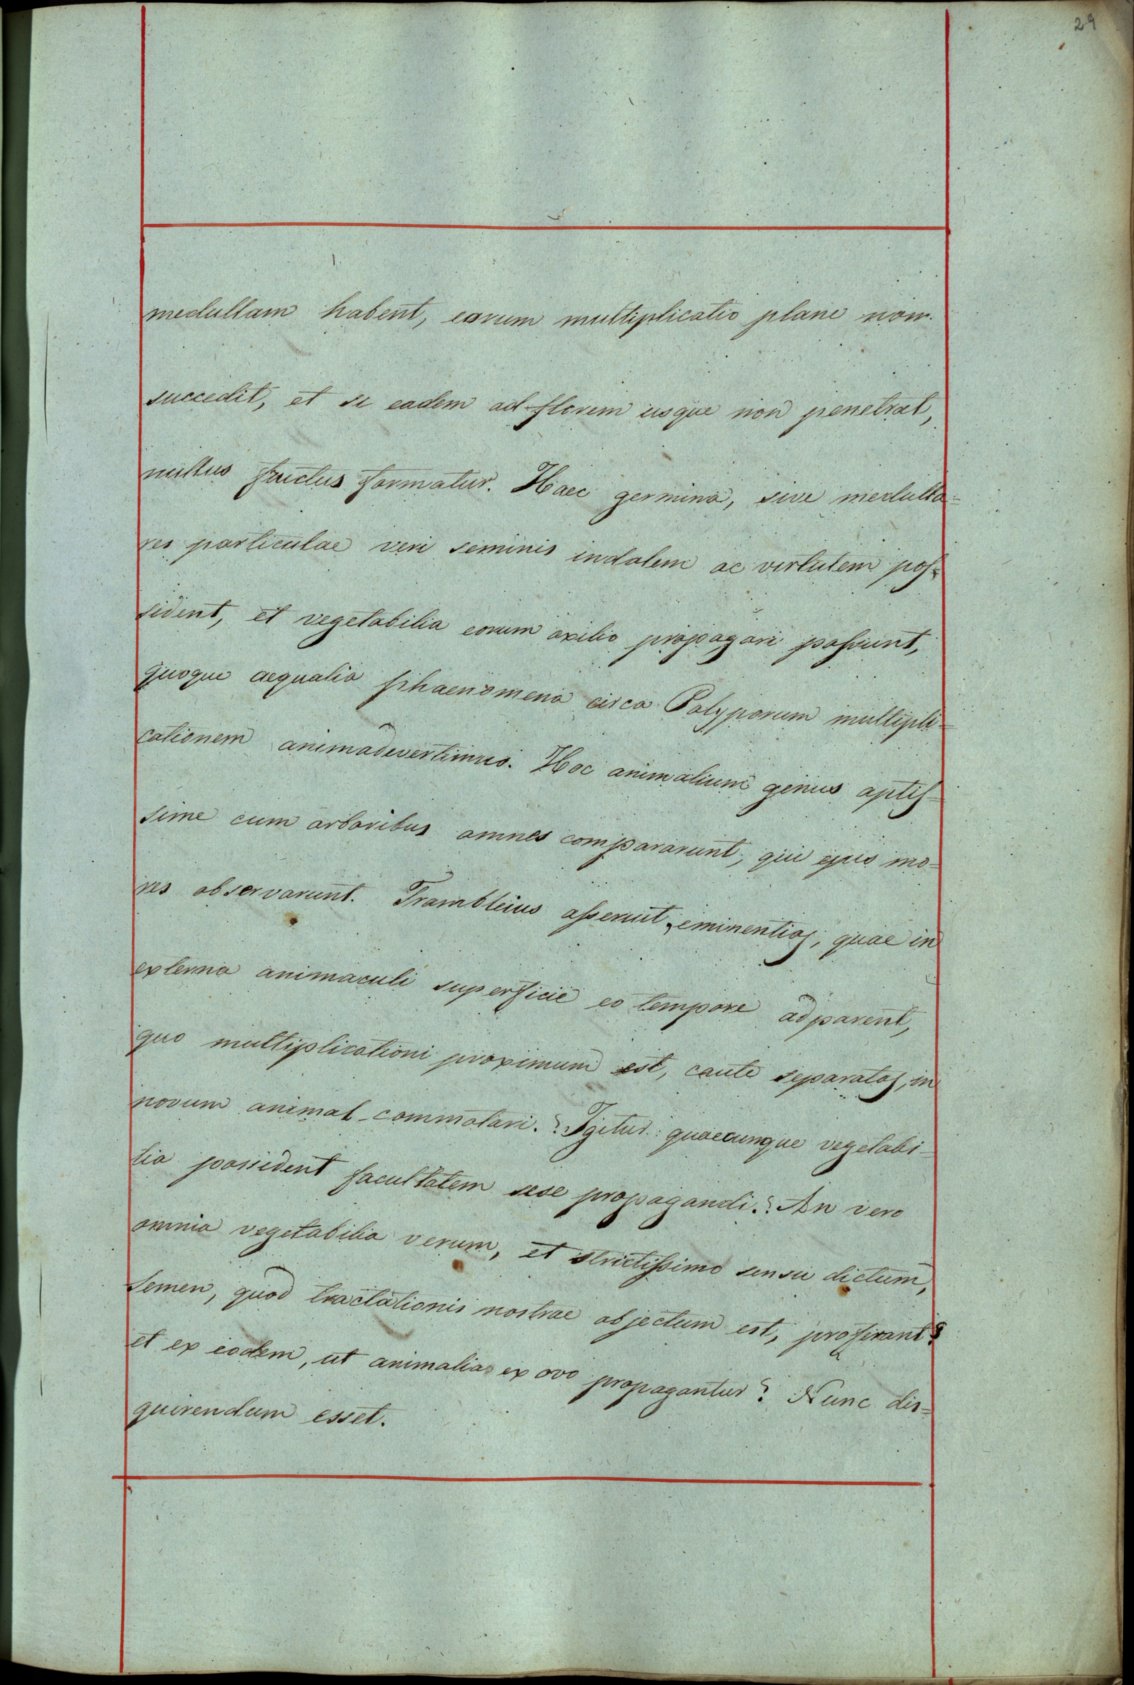 29
medullam habent, earum multiplicatio plane non
succedit, et si eadem ad florem usque non penetrat,
nullus fructus formatur. Haec germina, sive medulla=
res particulae veri seminis indolem ac virtutem pos=
sident, et vegetabilia eorum axilio propagari possunt,
quoque aequalia phaenomena circa Polyporum multipli=
cationem animadvertimus. Hoc animalium genus aptis=
sime cum arboribus omnes compararunt, qui ejus mo=
res observarunt. Trambleius asseruit, eminentias, quae in
externa animaculi superficie eo tempore adparent,
quo multiplicationi proximum est, caute separatas, in
novum animal commutari. Igitur quaecunque vegetabi=
lia possident facultatem sese propagandi. An vero
omnia vegetabilia verum, et strictissimo sensu dictum,
Semen, quod tractationis nostrae objectum est, proferant?
et ex eodem, ut animalia ex ovo propagantur? Nunc dis=
quirendum esset.